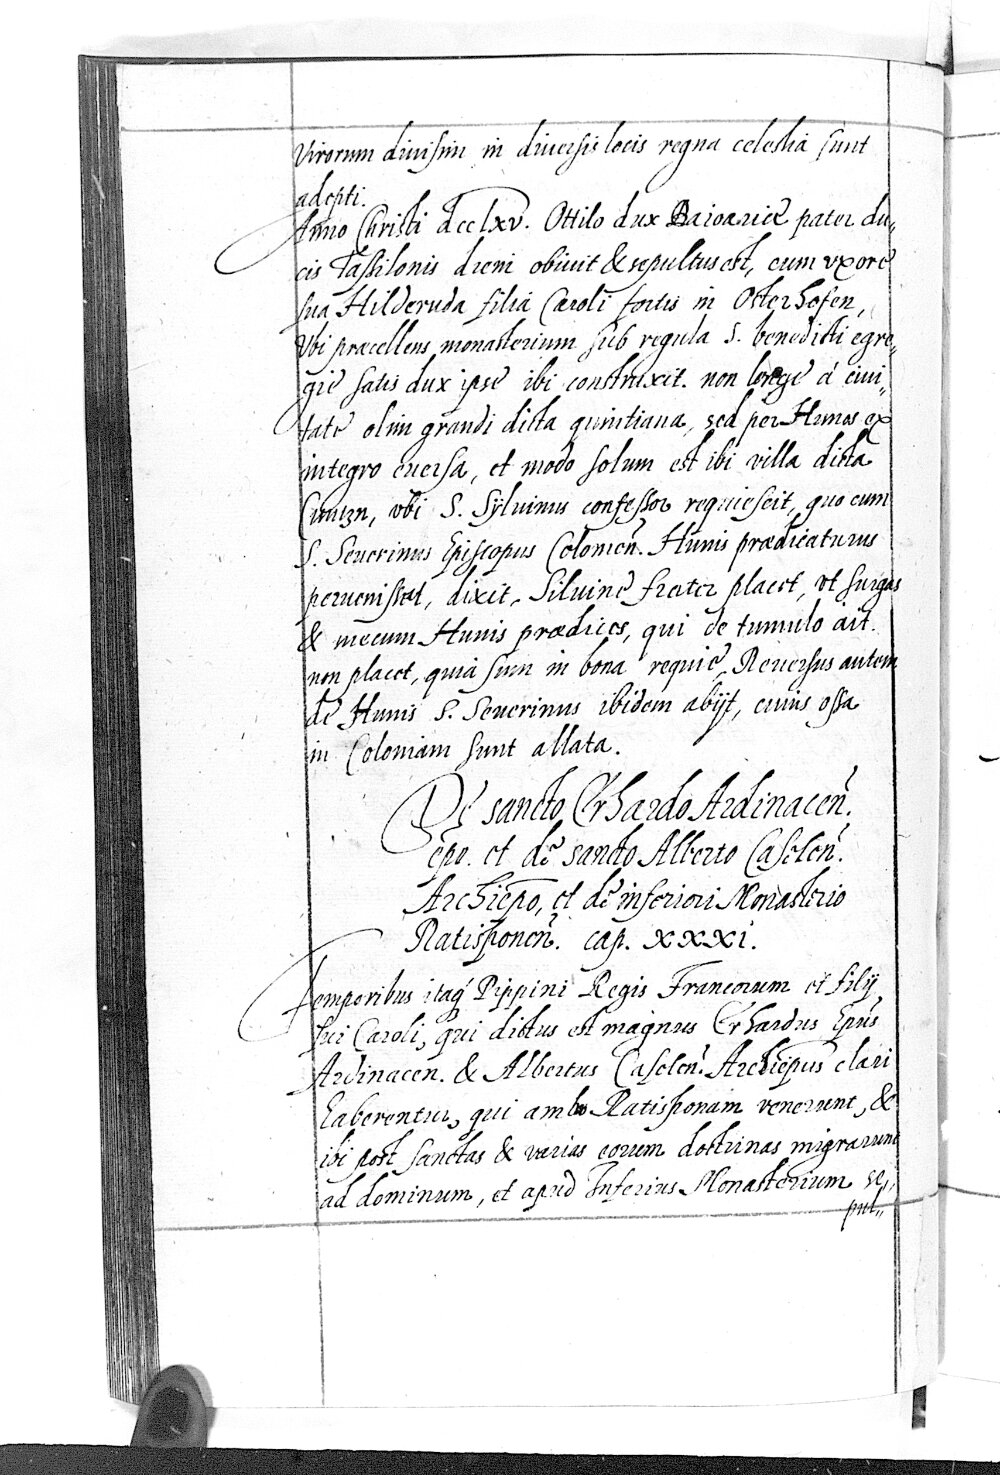 virorum divisim in diversis locis regna celestia sunt
adepti.
Anno Christi dcclxv. Ottilo dux Baioariæ pater du„
cis Tassilonis dieni obivit & sepultus est, cum vxore
sua Hilderuda filia Caroli fortis in Osterhofen,
Vbi præcellens monasterium sub regula S. benedicti egre„
gie satis dux ipse ibi construxit. non longe á civi„
tate olim grandi dicta quintiana, sed per Hunos ex
integro eversa, et modo solum est ibi villa dicta
Cuntzn, vbi S. Sylvinus confessor requiescit, quo cum
S. Severinus Episcopus Colonien. Hunis prædicaturus
pervenisset, dixit, Silvine frater placet, vt surgas
& mecum Hunis prædices, qui de tumulo ait.
non placet, quia sum in bona requie, Reversus autem
de Hunis S. Severinus ibidem abijt, cuius ossa
in Coloniam sunt allata.
De sancto Erhardo Ardinacen.
epo. et de sancto Alberto Caselen.
Archiepo, et de inferiori Monasterio
Ratisponen. cap. xxxi.
Temporibus itaq Pippini Regis Francorum et filij
sui Caroli, qui dictus est magnus Erhardus Epus
Ardinacen. & Albertus Caselen. Archiepus clari
haberentur, qui ambo Ratisponam venerunt, &
ibi post sanctas & varias eorum doctrinas migrarunt
ad dominum, et apud Inferius Monasterium se„
pul„